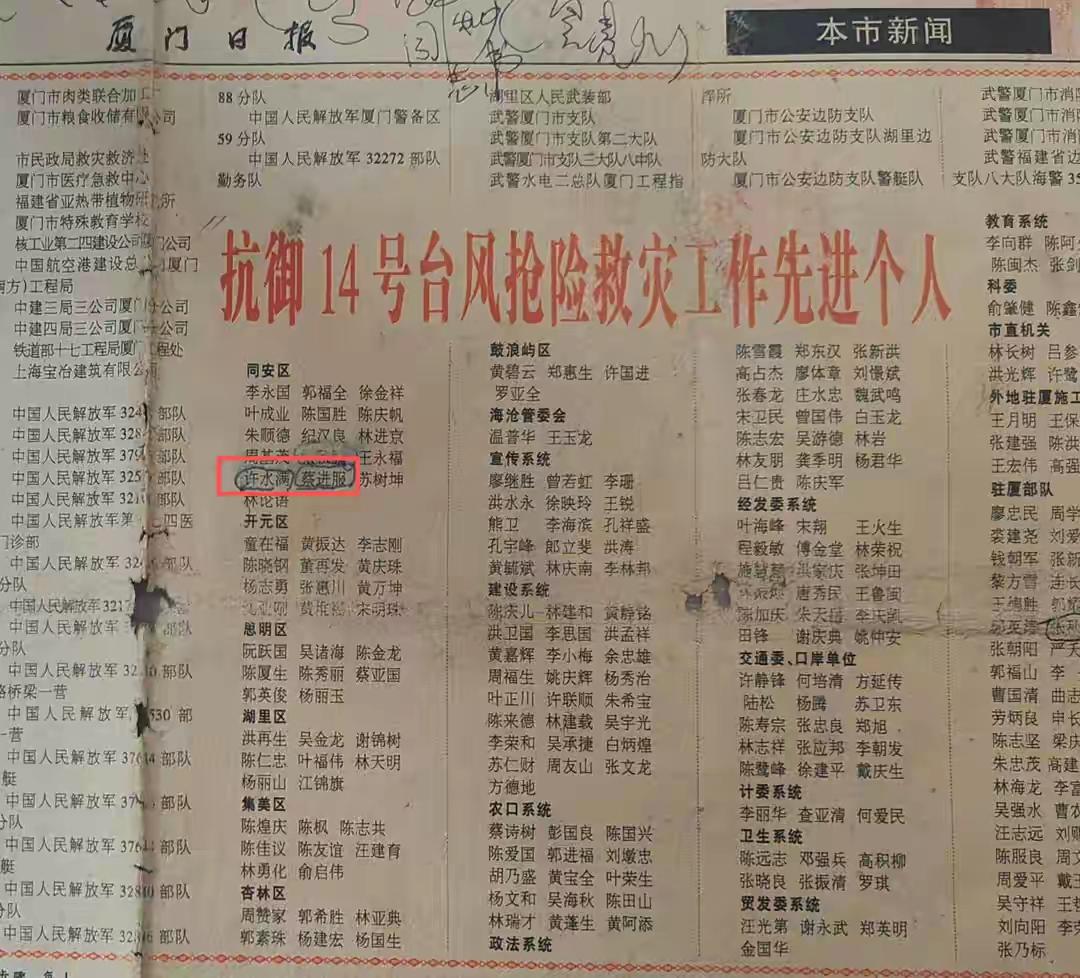 厦门日报
本市新闻
厦门市肉类联合加工
厦门市粮食收储有 公司
市民政局救灾救济
厦门市医疗急救中心
福建省亚热带植物研 所
厦门市特殊教育学校
核工业第二四建设公司厦门公司
中国航空港建设总 司厦门
南方)工程局
中建三局三公司厦门分公司
中建四局三公司厦门 公司
铁道部十七工程局厦门工程处
上海宝冶建筑有限公
中国人民解放军 部队
中国人民解放军 部队
中国人民解放军 部队
中国人民解放军 部队
中国人民解放军 部队
中国人民解放军第 四医
门诊部
中国人民解放军 部队
分队
中国人民解放军
中国人民解放军 部队
分队
中国人民解放军 部队
路桥梁一营
中国人民解放军 530 部
一营
中国人民解放军 部队
艇
中国人民解放军 部队
分队
中国人民解放军 部队
艇
中国人民解放军 部队
分队
中国人民解放军 部队
88 分队
中国人民解放军厦门警备区
59 分队
中国人民解放军 32272 部队
勤务队
湖里区人民武装部
武警厦门市支队
武警厦门市支队第二大队
武警厦门市支队三大队八中队
武警水电二总队厦门工程指
厦门市公安边防支队
厦门市公安边防支队湖里边
防大队
厦门市公安边防支队警艇队
武警厦门市消防
武警厦门市消
武警厦门市消
武警福建省边
支队八大队海警 35
抗御 14 号台风抢险救灾工作先进个人
同安区
李永国 郭福全 徐金祥
叶成业 陈国胜 陈庆帆
朱顺德 纪汉良 林进京
周基茂 王永福
许水满 蔡进服 苏树坤
林论语
开元区
童在福 黄振达 李志刚
陈晓钢 董再发 黄庆珠
杨志勇 张惠川 黄万坤
宋明珠
思明区
阮跃国 吴诸海 陈金龙
陈厦生 陈秀丽 蔡亚国
郭英俊 杨丽玉
湖里区
洪再生 吴金龙 谢锦树
陈仁忠 叶福伟 林天明
杨丽山 江锦旗
集美区
陈煌庆 陈枫 陈志共
陈佳议 陈友谊 汪建育
林勇化 俞启伟
杏林区
周赞家 郭希胜 林亚典
郭素珠 杨建宏 杨国生
鼓浪屿区
黄碧云 郑惠生 许国进
罗亚全
海沧管委会
温普华 王玉龙
宣传系统
廖继胜 曾若虹 李珊
洪水永 徐映玲 王锐
熊卫 李海滨 孔祥盛
孔宇峰 郎立斐 洪涛
黄毓斌 林庆南 李林邦
建设系统
陈庆儿 林建和 黄静铭
洪卫国 李思国 洪孟祥
黄嘉辉 李小梅 余忠雄
周福生 姚庆辉 杨秀治
叶正川 许联顺 朱希宝
陈来德 林建载 吴宇光
李荣和 吴承捷 白炳煌
苏仁财 周友山 张文龙
方德地
农口系统
蔡诗树 彭国良 陈国兴
陈爱国 郭进福 刘墩忠
胡乃盛 黄宝全 叶荣生
杨文和 吴海秋 陈田山
林瑞才 黄蓬生 黄阿添
政法系统
陈雪霞 郑东汉 张新洪
高占杰 廖体章 刘憬斌
张春龙 庄水忠 魏武鸣
宋卫民 曾国伟 白玉龙
陈志宏 吴游德 林岩
林友朋 龚季明 杨君华
吕仁贵 陈庆军
经发委系统
叶海峰 宋翔 王火生
程毅敏 傅金堂 林荣祝
洪家庆 张坤田
唐秀民 王鲁闽
陈加庆 朱天喜 李庆凯
田锋 谢庆典 姚仲安
交通委、口岸单位
许静锋 何培清 方延传
陆松 杨腾 苏卫东
陈寿宗 张忠良 郑旭
林志祥 张应邦 李朝发
陈鹭峰 徐建平 戴庆生
计委系统
李丽华 查亚清 何爱民
卫生系统
陈远志 邓强兵 高积柳
张晓良 张振清 罗琪
贸发委系统
汪光第 谢永武 郑英明
金国华
教育系统
李向群 陈阿
陈闽杰 张剑
科委
俞肇健 陈鑫
市直机关
林长树 吕参
洪光辉 许鹭
外地驻厦施工
王月明 王保
张建强 陈洪
王宏伟 高强
驻厦部队
廖忠民 周学
裘建尧 刘爱
钱朝军 张新
黎方雪 连长
王德胜 郭
张朝阳 严天
郭福山 李
曹国清 曲志
劳炳良 申长
陈志坚 梁庆
朱忠茂 高建
林海龙 李富
吴强水 曹农
汪志远 刘
陈服良 周文
周爱平 戴王
吴守祥 王
刘向阳 李荣
张乃标